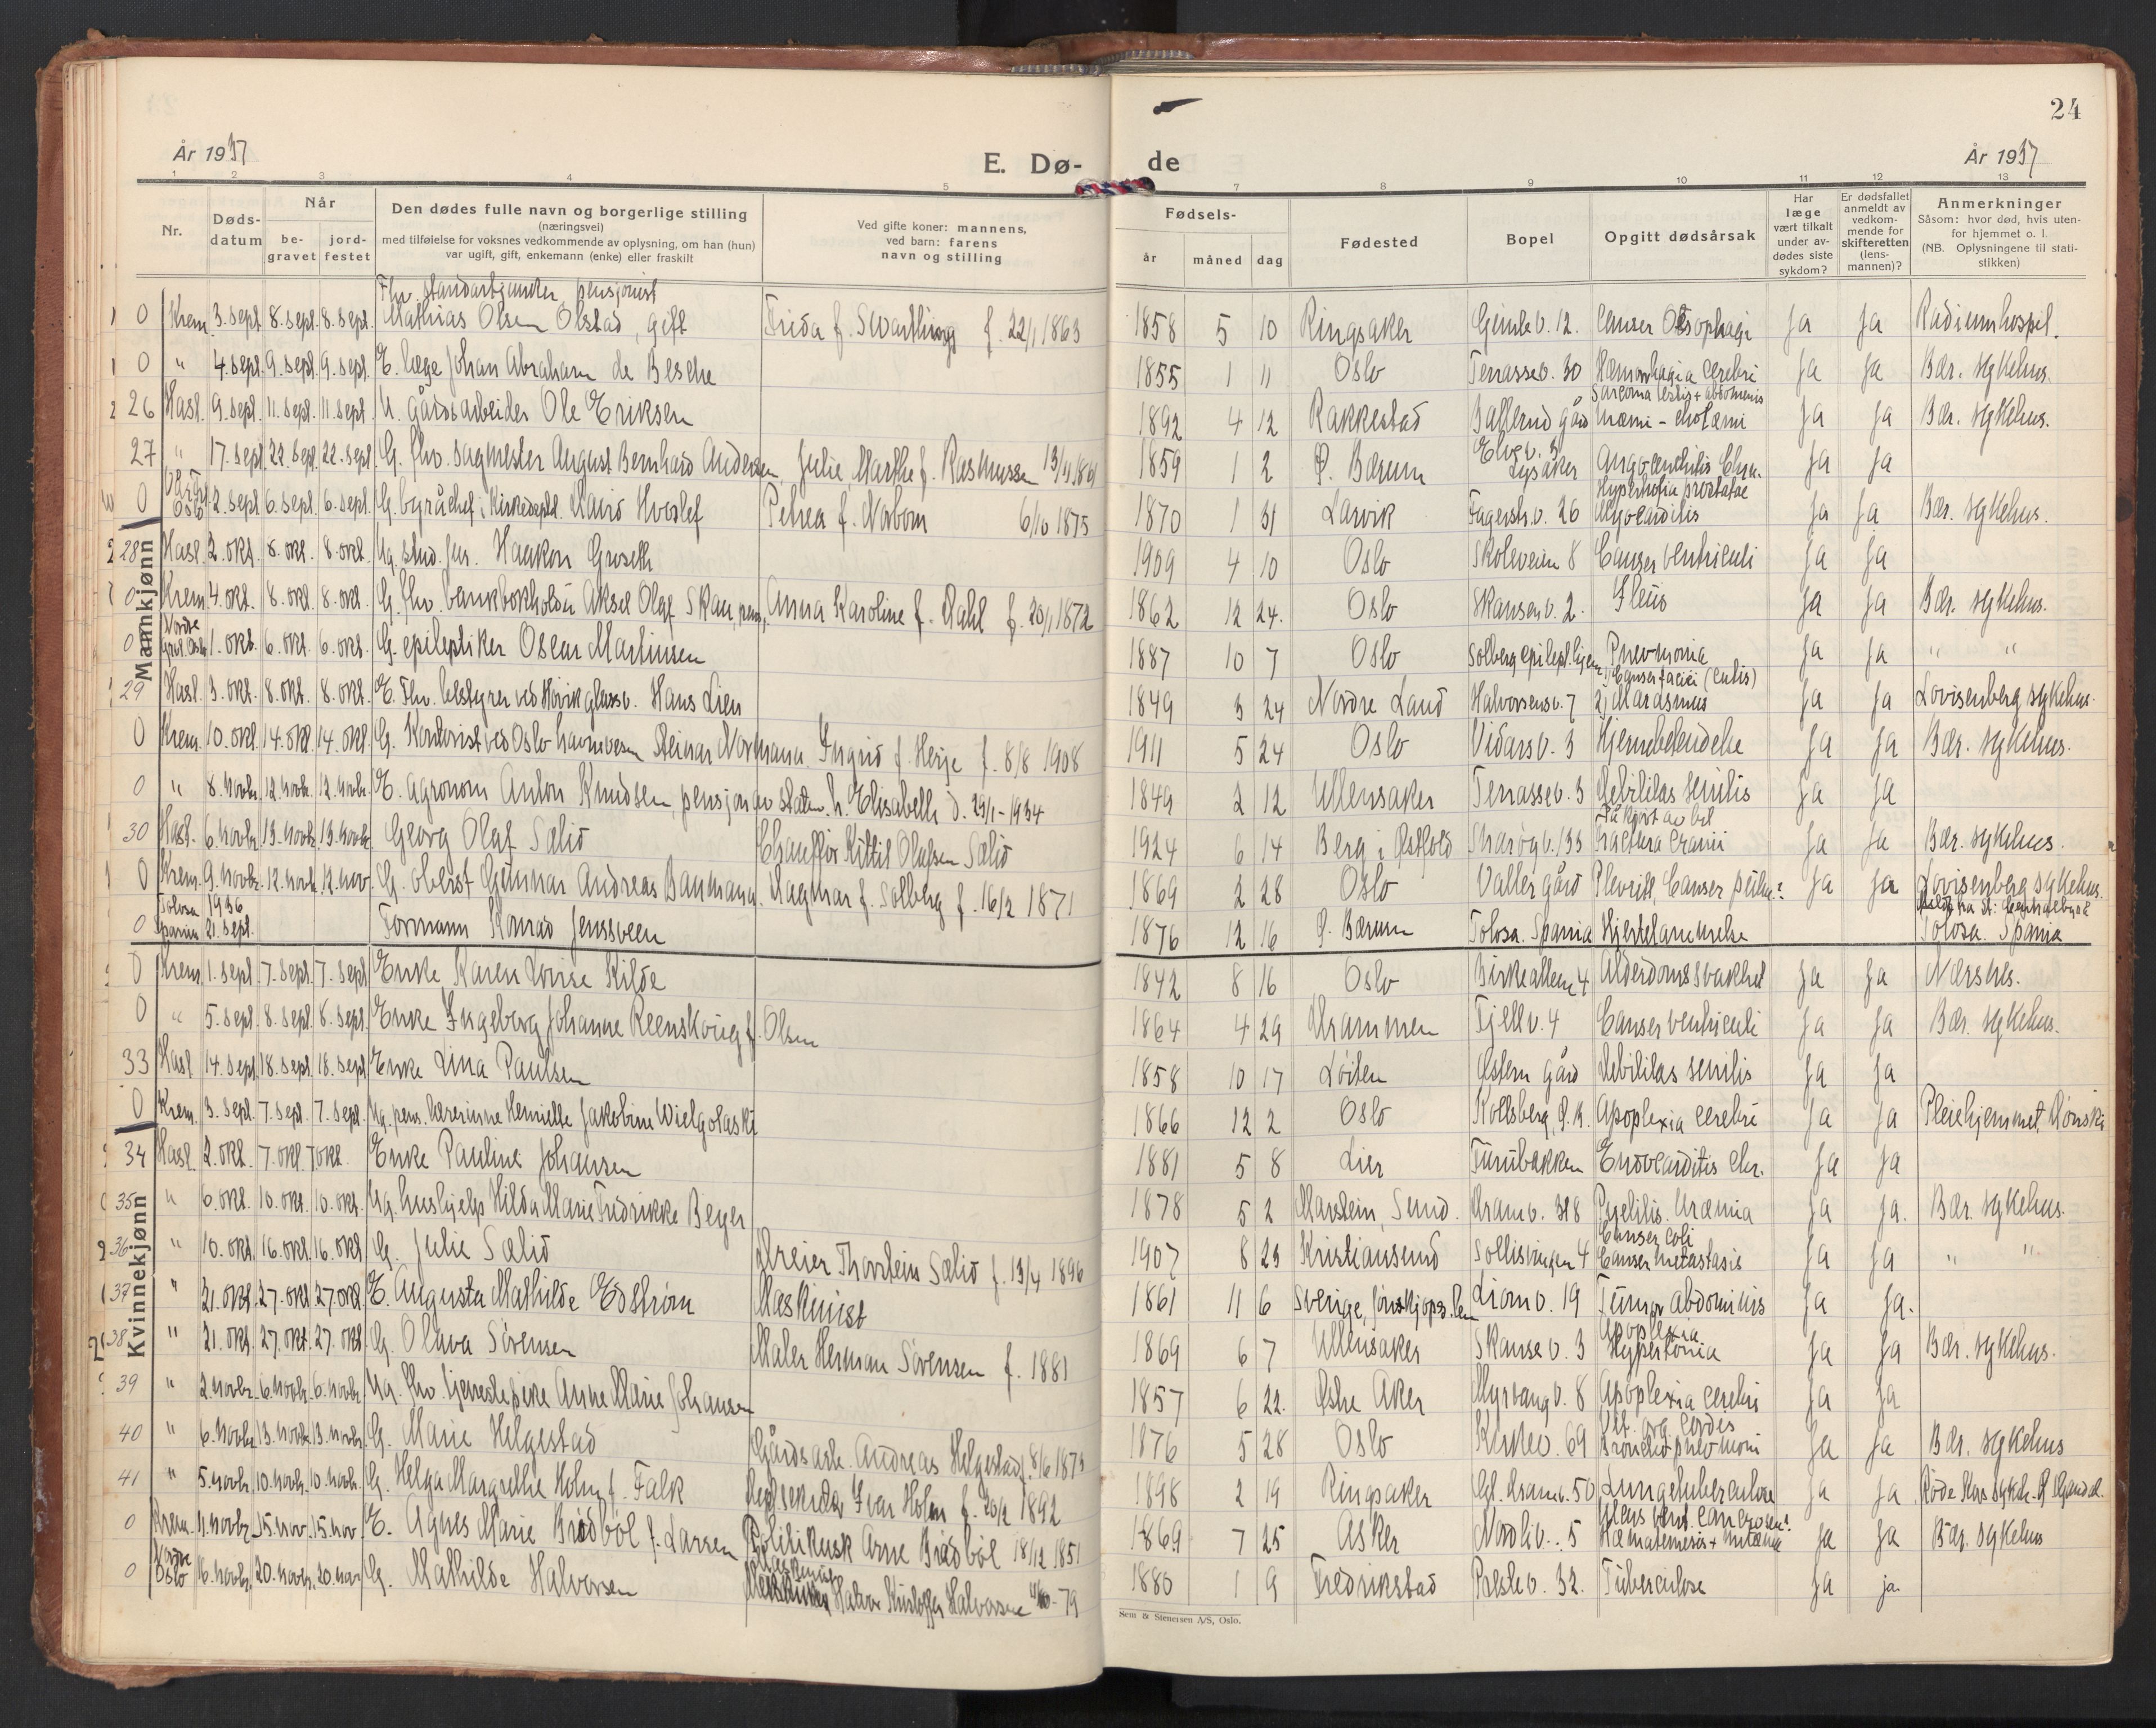 24
År 1937
E. Dø-
de
År 1937
1 2 3 4 5 7 8 9 10 11 12 13
Nr.
Døds-
datum
Når
be-
gravet
jord-
festet
Den dødes fulle navn og borgerlige stilling
(næringsvei)
med tilføielse for voksnes vedkommende av oplysning, om han (hun)
var ugift, gift, enkemann (enke) eller fraskilt
Ved gifte koner: mannens,
ved barn: farens
navn og stilling
Fødsels-
år måned dag
Fødested
Bopel
Opgitt dødsårsak
Har
læge
vært tilkalt
under av-
dødes siste
sykdom?
Er dødsfallet
anmeldt av
vedkom-
mende for
skifteretten
(lens-
mannen)?
Anmerkninger
Såsom: hvor død, hvis uten-
for hjemmet o. l.
(NB. Oplysningene til stati-
stikken)
Mannkjønn
Fhv. standartjunker, pensjonist
0 Krem. 3. sept. 8. sept. 8. sept. Mathias Olsen Olstad, gift Frida f. Swartling f. 22/1 1863 1858 5 10 Ringsaker Gimlev. 12. Canser Oesophagi ja ja Radiumhospel.
0 " 4. sept. 9. sept. 9. sept. E. læge Johan Abraham de Besche 1855 1 11 Oslo Terrassev. 30 Hæmorrhagia cerebri ja ja Bær. sykehus.
Sarcoma testis + abdominis
26 Hasl. 9. sept. 11. sept. 11. sept. U. gårdsarbeider Ole Eriksen 1892 4 12 Rakkestad Ballerud gård Uræmi - ja ja Bær. sykehus.
27 " 17. sept. 22. sept. 22. sept. G. fhv. sagmester August Bernhard Andersen, Julie Marthe f. Rasmussen 1859 1 2 Ø. Bærum Elvev. 3 Lysaker ja ja
0 Oslo 2. sept. 6. sept. 6. sept. G. byråchef i Kirkedeptet. David Hvoslef Petrea f. Norbom 6/10 1875 1870 1 31 Larvik Fagerstr.v. 26 Hypertrofia prostatae Myocarditis ja ja Bær. sykehus.
28 Hasl. 2. okt. 8. okt. 8. okt. Ug. stud. jur. Haakon Groseth 1909 4 10 Oslo Skoleveien 8 Canser ventriculi ja ja
0 Krem. 4. okt. 8. okt. 8. okt. G. fhv. bankbokholder Aksel Olaf Skau, pens. Anna Karoline f. Dahl f. 20/1 1872 1862 12 24. Oslo Skansenv. 2. Ileus ja ja Bær. sykehus.
0 Nordre Grav. Oslo 1. okt. 6. okt. 6. okt. G. epileptiker Oscar Martinsen 1887 10 7 Oslo Solberg epilept.hjem Pnevmonia ja ja " "
1) Canser faciei (cutis)
29 Hasl. 3. okt. 8. okt. 8. okt. E. Fhv. bestyrer ved Høvik glassv. Hans Lien 1849 3 24 Nordre Land Halvorsensv. 7 2) Marasmus ja ja Lovisenberg sykehus.
0 Krem. 10. okt. 14. okt. 14. okt. G. Kontorist ved Oslo havnevesen Steinar Normann. Ingrid f. Herje f. 8/8 1908 1911 5 24 Oslo Vidarsv. 3 Hjernebetendelse ja ja Bær. sykehus.
0 " 8. novbr. 12. novbr. 12. novbr. E. agronom Anton Knudsen, pensjon av staten. h. Elisabeth d. 29/1-1934 1849 2 12 Ullensaker Terrassev. 3 Debilitas senilis ja ja
Påkjørt av bil
30 Hasl. 6. novbr. 13. novbr. 13. novbr. Georg Olaf Sælid Chauffør Kittil Olafsen Sælid 1924 6 14 Berg i Østfold 133 Fractura cranii ja ja Bær. sykehus.
0 Krem. 9. novbr. 12. novbr. 12. nov. G. oberst Gunnar Andreas Baumann. Dagmar f. Solberg f. 16/2 1871 1869 2 28 Oslo Valler gård Plevritt, Canser ja ja Lovisenberg sykehus.
0 Tolosa Spania 1936 21. sept. Formann Konrad Jenssveen 1876 12 16 Ø. Bærum Tolosa. Spania Hjertelammelse Tolosa. Spania
Kvinnekjønn
0 Krem. 1. sept. 7. sept. 7. sept. Enke Karen Lovise Kilde 1842 8 16 Oslo Birkealleen 4 Alderdomssvakhet ja ja Nærsnes.
0 " 5. sept. 8. sept. 8. sept. Enke Ingeborg Johanne Reenskoug f. Olsen 1864 4 29 Drammen Fjellv. 4 Canser ventriculi ja ja Bær. sykehus.
33 Hasl 14. sept. 18. sept. 18. sept. Enke Lina Paulsen 1858 10 17 Løiten Østern gård Debilitas senilis ja ja
0 Krem. 3. sept. 7. sept. 7. sept. Ug. pens. lærerinne Henriette Jakobine Wielgolaski 1866 12 2 Oslo Kolsberg, Ø.B. Apoplexia cerebri ja ja Pleiehjemmet,
34 Hasl 2. okt. 7. okt. 7 okt. Enke Pauline Johansen 1881 5 8 Lier Furubakken Endocarditis chr. ja ja
35 " 6. okt. 10. okt. 10. okt. Ug. hushjelp Hilda Marie Fredrikke Beyer 1878 5 2 Marstein, Sund. Dramv. 318 Pyelitis. Uræmia ja ja. Bær. sykehus.
Canser coli
36 " 10. okt. 16. okt. 16. okt. G. Julie Sælid Dreier Thorstein Sælid f. 13/4 1896 1907 8 23 Kristiansund Sollisvingen 4 Canser metastasis ja ja " "
37 " 21. okt. 27. okt. 27. okt. E. Augusta Mathilde Edstrøm Maskinist 1861 11 6 Sverige, Jönskjöps. len Lionv. 19 Tumor abdominis ja ja.
Apoplexia
38 " 21. okt. 27. okt. 27. okt. G. Olava Sørensen Maler Herman Sørensen f. 1881 1869 6 7 Ullensaker Skansev. 3 Hypertonia ja ja Bær. sykehus.
39 " 2. novbr. 6. novbr. 6. novbr. Ug. fhv. tjenestepike Anne Marie Johansen 1857 6 22. Østre Aker Myrvangv. 8 Apoplexia cerebri ja ja
Vit. org. cordis
40 " 6. novbr. 13. novbr. 13. novbr. G. Marie Helgestad Gårdsarb. Andreas Helgestad f. 8/6 1873 1876 5 28 Oslo Kirkev. 69 Bronchopnevmoni ja ja Bær. sykehus
41 " 5. novbr. 10. novbr. 10. novbr. G. Helga Margrethe Holm f. Falk Ivar Holm f. 20/2 1892 1898 2 19 Ringsaker Gl. Dramv. 50 Lungetuberculose ja ja Røde Kors sykeh.
0 Krem. 11. novbr. 15. nov. 15. nov. E. Agnes Marie Brødbøl f. Larsen Politikusk Arne Brødbøl 18/12 1851 1869 7 25 Asker Nordliv. 5 Ulcus vent. Hæmatemesis + melæna ja ja Bær. sykehus
Maskinist
0 Nordre Oslo 16. novbr. 20. novbr. 20. nov. G. Mathilde Halvorsen Halvor Kristoffer Halvorsen 1880 1 9 Fredrikstad Prestev. 32. Tuberculose ja ja
Sem & Stenersen A/S, Oslo.